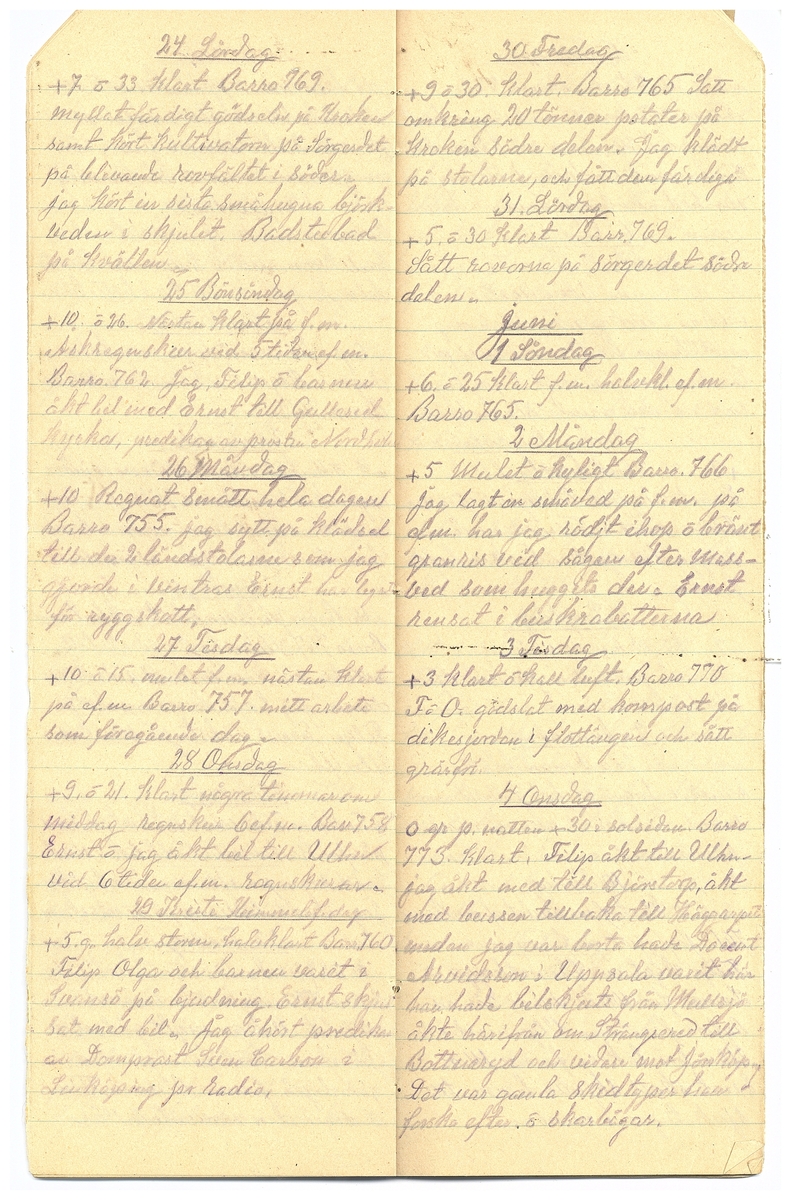 24 Lördag
+7 ö 33 klart Barro 769.
myllat färdigt gödseln på Kroken
samt kört kultivatorn på Sörgerdet
på blivande rovfältet i söder.
jag kört in sista småhugna björk-
veden i skjulet. Badstubad
på kvällen
25 Bönsöndag
+10 ö 26. nästan klart på f.m.
Askregnskur ved 5 tiden ef.m.
Barro 762. Jag, Filip ö barnen
åkt bil med Ernst till Gullered
kyrka, predikan av prosten
26 Måndag
+10 Regnat smått hela dagen
Barro 755. jag sytt på klädsel
till de 2 länstolarne som jag
gjorde i vintras Ernst har legat
för ryggskott,
27 Tisdag
+10 ö 15. mulet f.m. nästan klart
på ef.m Barro 757. mitt arbete
som föregående dag.
28 Onsdag
+9. ö 21. klart några timmar om
middag regnskur 6 ef.m. Bar 758
Ernst ö jag åkt bil till Ulhn
vid 6 tiden ef.m. regnskurar.
29 Kristi Himmelsf.dag
+5 gr halv storm, halvklart Bar. 760
Filip Olga och barnen varit i
Svansö på bjudning. Ernst skjus
sat med bil. Jag åhört predikan
av Domprost Sven Carbon i
Linköping pr Radio,
30 Fredag
+9 ö 30. Klart. Barro 765 Satt
omkring 20 tönner potater på
Kroken södre delen. Jag klädt
på stolarne, och fått dem färdiga
31. Lördag
+5. ö 30 Klart Barr. 769.
Sått rovorna på Sörgerdet södre
delen.
Juni
1 Söndag
+6. ö 25 Klart f.m. halvkl. ef.m.
Barro 765.
2 Måndag
+5 Mulet ö kyligt Barro. 766
Jag lagt in småved på f.m. på
e.m. har jag rödjt ihop ö bränt
granris vid sågen efter mass-
ved som huggits der. Ernst
rensat i buskrabatterna
3 Tisdag
+3 Klart ö kall luft. Barro 770
F. ö O. gödslat med kompost på
dikesjorden i flottängen och sått
gräsfrö.
4 Onsdag
0 gr p. natten +30 i solsidan. Barro
773. Klart, Filip åkt till Ulhn-
jag åkt med till Björstorp, åkt
med bussen tillbaka till
medan jag var borta hade Docent
Arvidsson i Uppsala varit här
han hade bilskjuts från Mullsjö
åkte härifrån om Strängsered till
Bottnaryd och vidare mot Jönköp-
Det var gamla skidtyper han
forska efter. ö skarbågar.